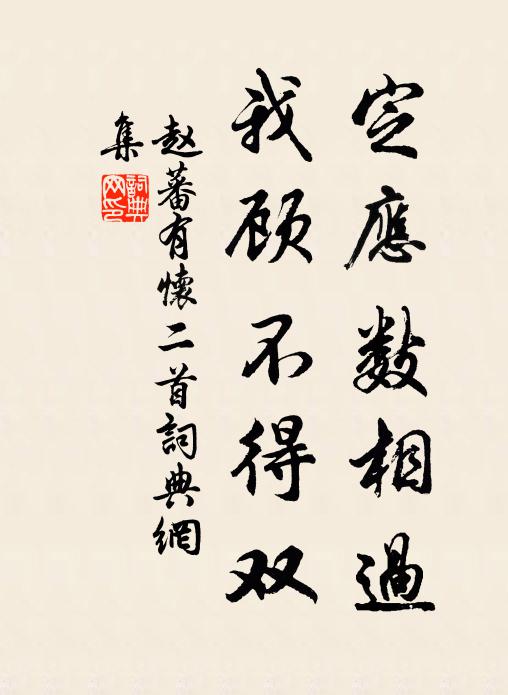 定應数相過
我顾不得双
赵蕃有懷二首詞典網
集
詞典
网印